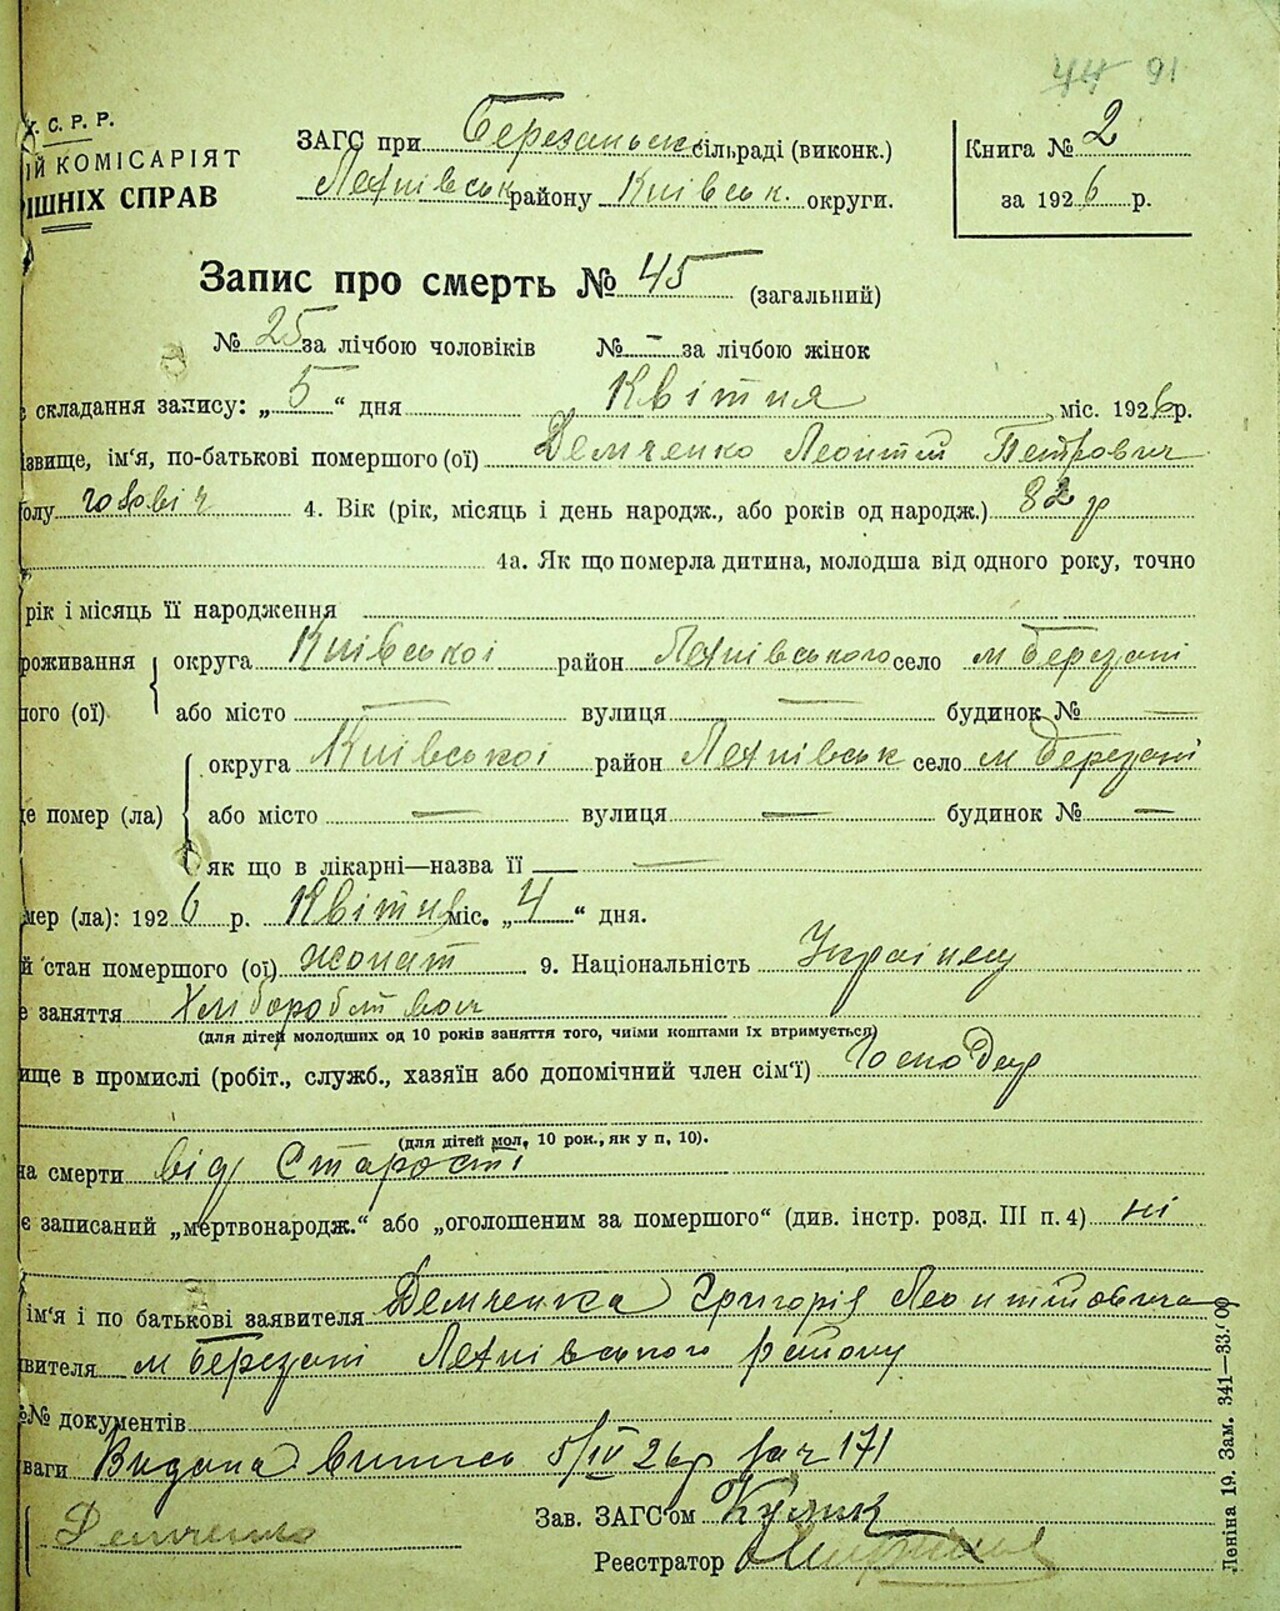 44 91
У. С. Р. Р.
ИЙ КОМІСАРІЯТ
ІШНІХ СПРАВ
ЗАГС при Березаньск сільраді (виконк.)
Ляхнівськ району Київськ. округи.
Книга № 2
за 1926 р.
Запис про смерть № 45 (загальний)
№ 25 за лічбою чоловіків № - за лічбою жінок
складання запису: „5“ дня Квітня міс. 1926 р.
ізвище, ім'я, по-батькові помершого (ої) Демченко Леонтій Петрович
олу чоловіч 4. Вік (рік, місяць і день народж., або років од народж.) 82 р
4а. Як що померла дитина, молодша від одного року, точно
рік і місяць її народження
роживання округа Київської район Ляхнівського село м Березані
ого (ої) або місто — вулиця — будинок № —
округа Київської район Ляхнівськ село м Березані
е помер (ла) або місто — вулиця — будинок № —
як що в лікарні—назва її —
мер (ла): 1926 р. Квітня міс. „4“ дня.
й стан помершого (ої) жонат 9. Національність Українец
е заняття Хліборобством
(для дітей молодших од 10 років заняття того, чиїми коштами їх втримується)
ище в промислі (робіт., служб., хазяїн або допомічний член сім'ї) Господар
(для дітей мол, 10 рок., як у п, 10).
на смерти від Старости
є записаний „мертвонародж.“ або „оголошеним за помершого“ (див. інстр. розд. III п. 4) ні
ім'я і по батькові заявителя Демченка Григорія Леонтійовича
вителя м Березані Ляхнівського району
№№ документів
ваги Видана випись 5/IV 26р за ч 171
Демченко
Зав. ЗАГС'ом Кулик
Реєстратор
Леніна 19. Зам. 341—33.000